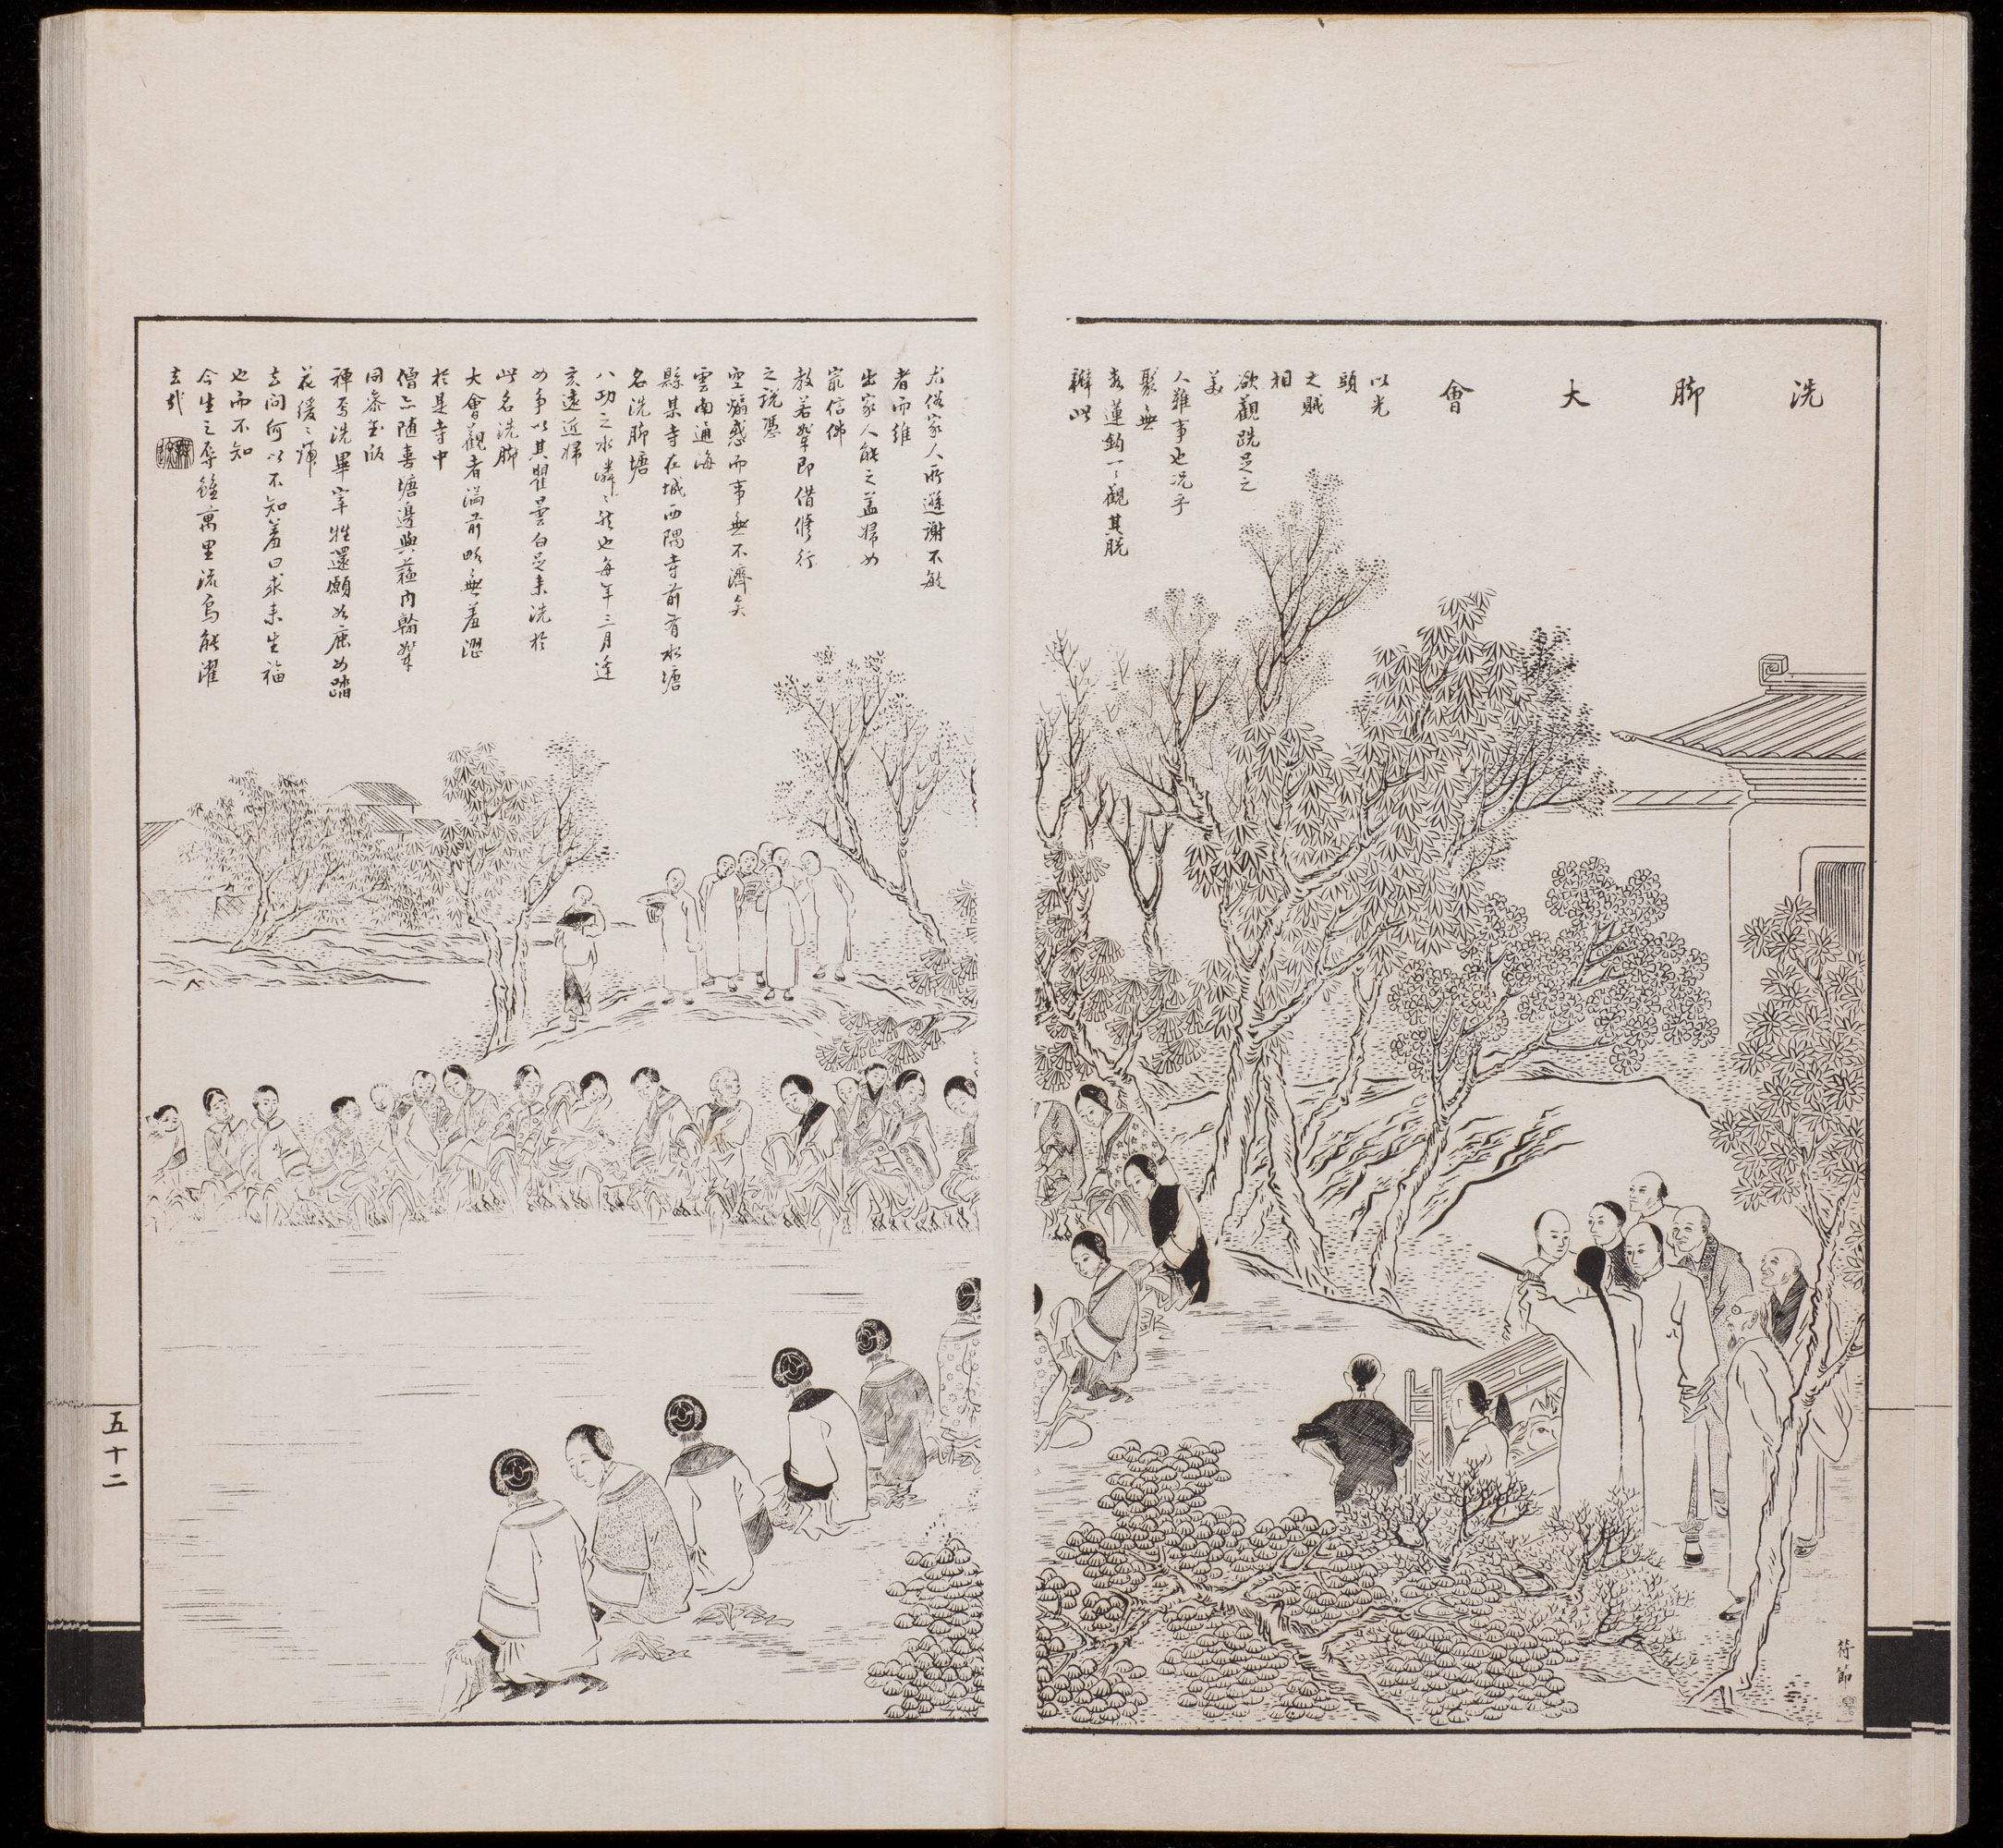 洗脚大會
以光
頭
之賊
相
欲觀跣足之
美
人難事也况乎
聚無
數蓮鈎一一觀其脱
辦此
尤俗家人所遜謝不敏
者而維
出家人能之盖婦女
最信佛
教若輩即借修行
之説憑
空煽惑而事無不濟矣
雲南通海
縣某寺在城西隅寺前有水塘
名洗脚塘
八功之水潾潾然也每年三月逢
亥遠近婦
女爭以其瞿曇白足來洗於
此名洗脚
大會觀者滿前略無羞澀
於是寺中
僧亦随喜塘邊與蘊内翰輩
同參玉版
禪焉洗畢宰牲還願如鹿女踏
花緩緩歸
去問何以不知羞曰求來生福
也而不知
今生之辱雖萬里流烏能濯
去哉
符節
五十二